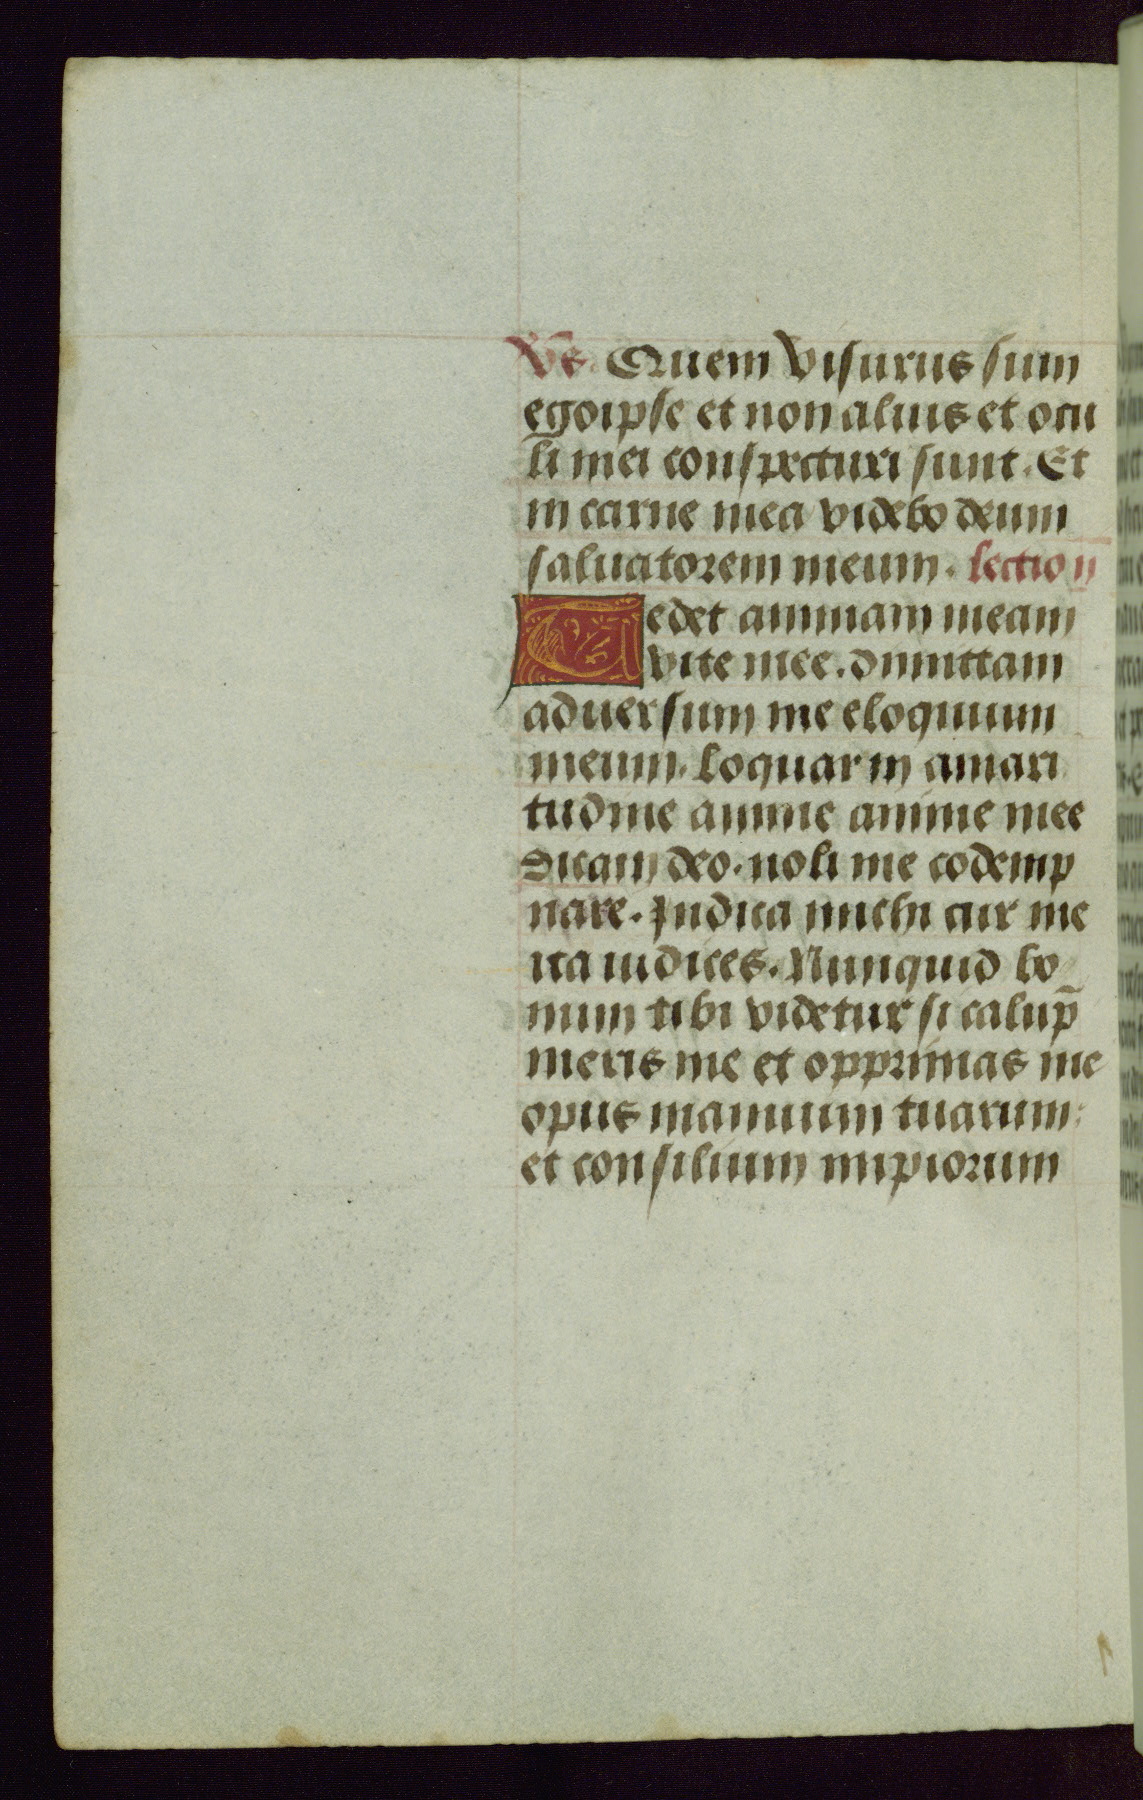 Vs. Quem visurus sum
ego ipse et non alius et ocu
li mei conspecturi sunt. Et
in carne mea videbo deum
saluatorem meum. lectio ii
Tedet animam meam
vite mee. dimittam
aduersum me eloquium
meum. loquar in amari
tudine anime anime mee
Dicam deo. noli me codemp
nare. Indica michi cur me
ita iudices. Nunquid bo
num tibi videtur si calup̄
meris me et opprimas me
opus manuum tuarum:
et consilium impiorum